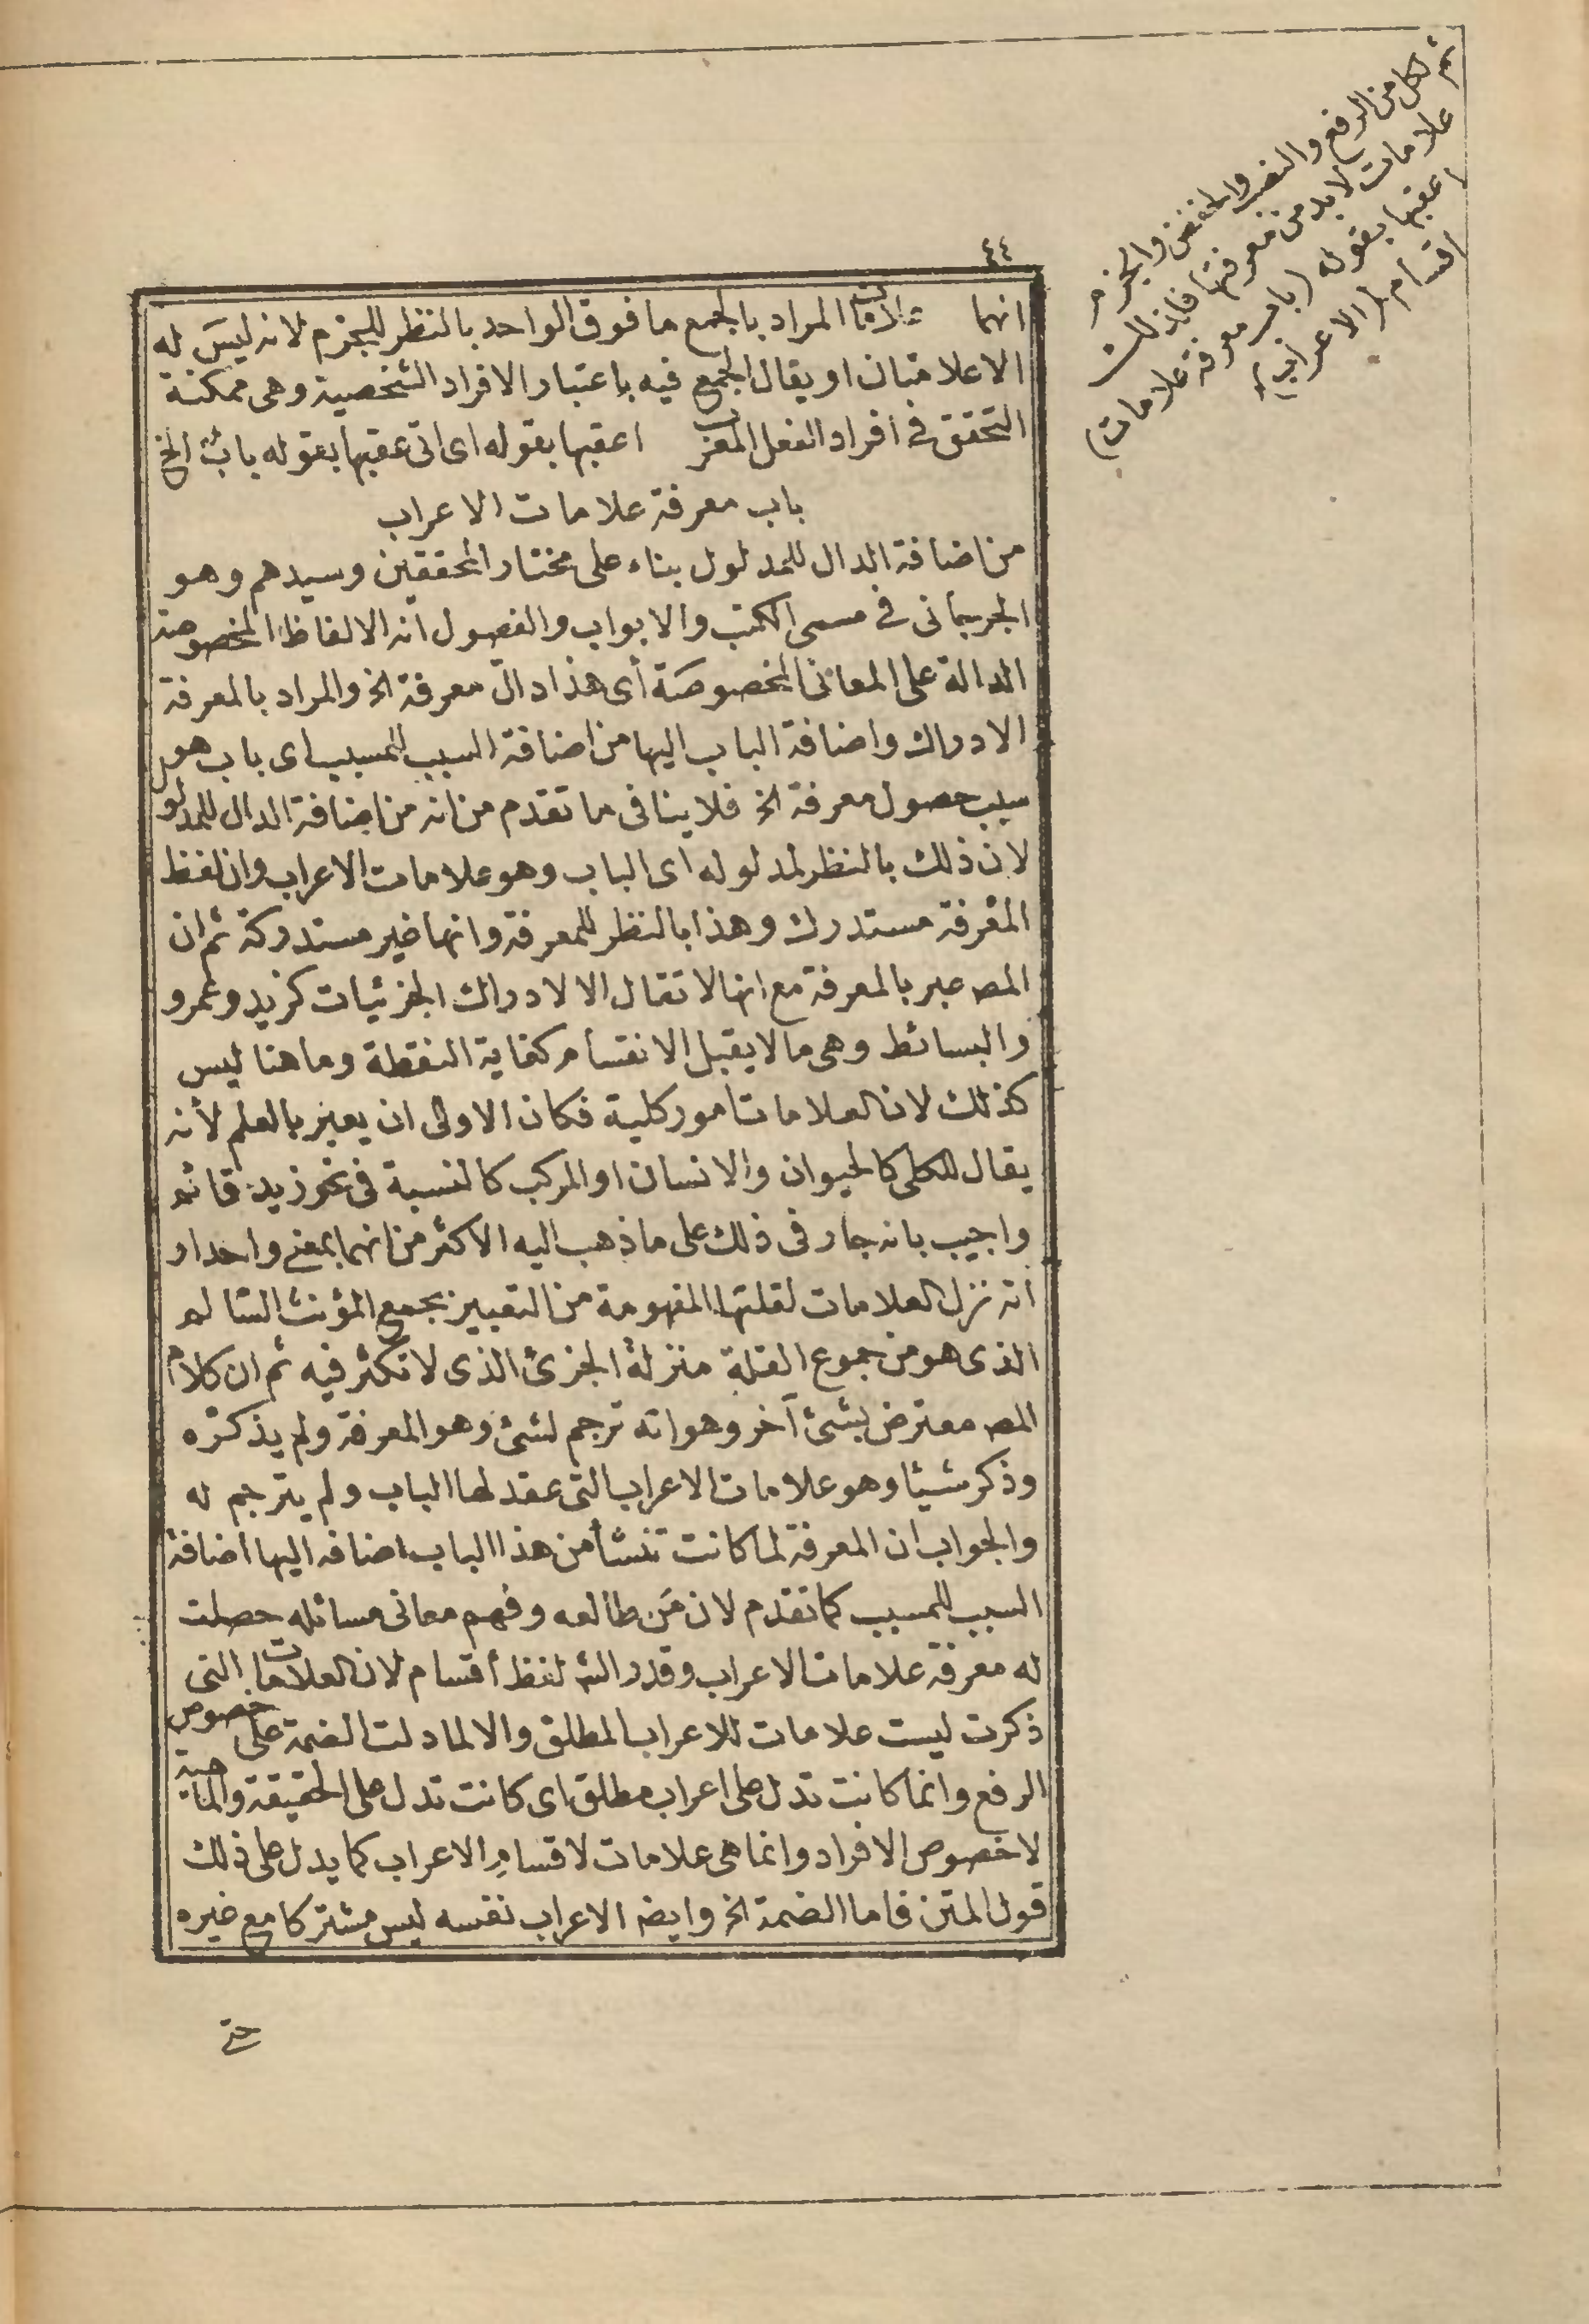 ٤٤
ثم لكل من الرفع والنصب والخفض والجزم
علامات لابد من معرفتها فلذلك
اعقبها بقوله (باب معرفة علامات)
اقسام (الاعراب)
انهما علامات المراد بالجمع ما فوق الواحد بالنظر للجزم لانه ليس له
الاعلامتان او يقال الجمع فيه باعتبار الافراد الشخصية وهى ممكنة
التحقق فى افراد الفعل المعرب اعقبها بقوله اى اتى عقبها بقوله باب الخ
باب معرفة علامات الاعراب
من اضافة الدال للمدلول بناء على مختار المحققين وسيدهم وهو
الجرجانى فى مسمى الكتب والابواب والفصول انه الالفاظ المخصوصة
الدالة على المعانى المخصوصة أى هذا دالّ معرفة الخ والمراد بالمعرفة
الادراك واضافة الباب اليها من اضافة السبب للمسبب اى باب هو
سبب حصول معرفة الخ فلا ينافى ما تقدم من انه من اضافة الدال للمدلول
لان ذلك بالنظر لمدلوله اى الباب وهو علامات الاعراب وان لفظ
المعرفة مستدرك وهذا بالنظر للمعرفة وانها غير مستدركة ثم ان
المصـ عبر بالمعرفة مع انها لا تقال الا لادراك الجزئيات كزيد وعمرو
والبسائط وهى ما لا يقبل الانقسام كغاية النقطة وما هنا ليس
كذلك لان العلامات امور كلية فكان الاولى ان يعبر بالعلم لأنه
يقال للكلى كالحيوان والانسان او المركب كالنسبة فى نحو زيد قائم
واجيب بانه جار فى ذلك على ما ذهب اليه الاكثر من انهما بمعنى واحد او
انه نزل العلامات لقلتها المفهومة من التعبير بجمع المؤنث السالم
الذى هو من جموع القلة منزلة الجزئ الذى لا تكثر فيه ثم ان كلام
المصـ معترض بشئ آخر وهو انه ترجم لشئ وهو المعرفة ولم يذكره
وذكر شيئا وهو علامات الاعراب التى عقد لها الباب ولم يترجم له
والجواب ان المعرفة لما كانت تنشأ من هذا الباب اضافه اليها اضافة
السبب للمسبب كما تقدم لان مَن طالعه وفهم معانى مسائله حصلت
له معرفة علامات الاعراب وقدر الشـ لفظ أقسام لان العلامات التى
ذكرت ليست علامات للاعراب المطلق والا لما دلت الضمة على خصوص
الرفع وانما كانت تدل على اعراب مطلق اى كانت تدل على الحقيقة والماهية
لا خصوص الافراد وانما هى علامات لاقسام الاعراب كما يدل على ذلك
قول المتن فاما الضمة الخ وايضـ الاعراب نفسه ليس مشتركا مع غيره
حتى